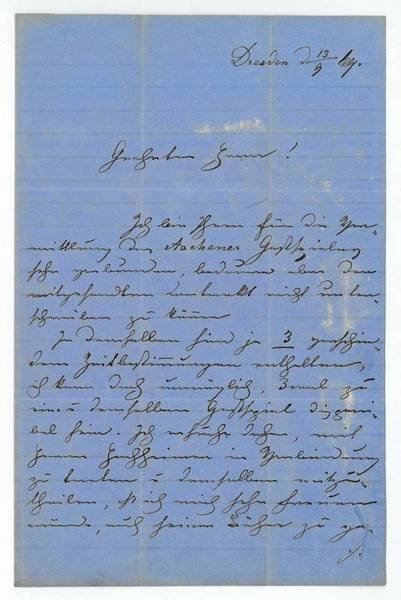 Dresden d 13/9 69.
Geehrter Herr!
Ich bin Ihnen für die Ver-
mittlung des Aachener Gastspieles
sehr verbunden, bedaure aber den
mitgesandten Contract nicht unter-
schreiben zu können
In demselben sind ja 3 verschie-
dene Zeitbestimmungen enthalten,
ich kann doch unmöglich, 3mal zu
ein u demselben Gastspiel disponi-
bel sein. Ich ersuche daher, mit
Herrn in Verbindung
zu treten u demselben mitzu-
theilen, daß ich mich sehr freuen
würde, auf seiner Bühne zu ga-